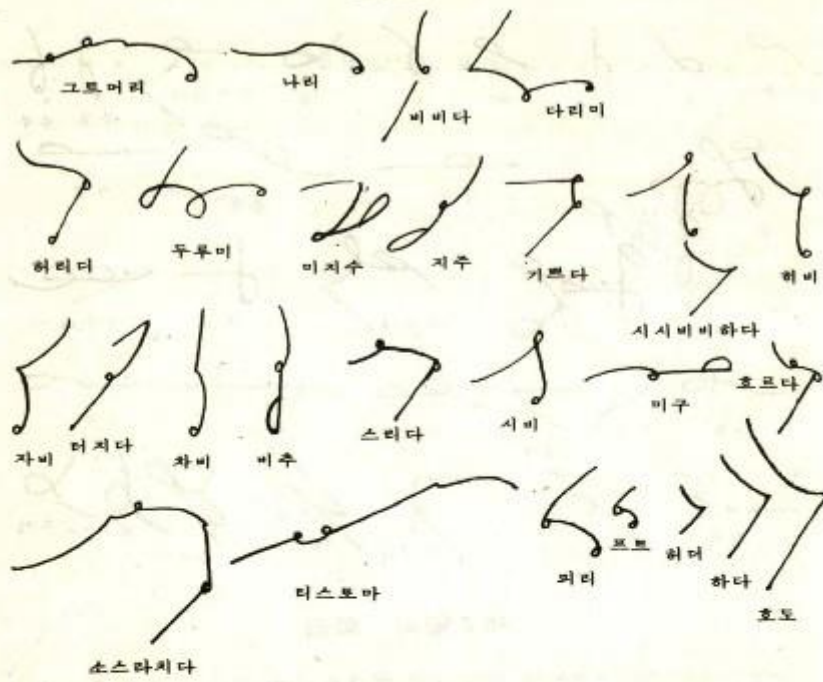 그트머리 나리 비비다 다리미
허리디 두루미 미지수 지주 기쁘다 시시비비하다 허비
자비 터지다 차비 비추 스리다 시비 미구 흐르다
소스라치다 티스토마 피리 프트 허더 하다 호도